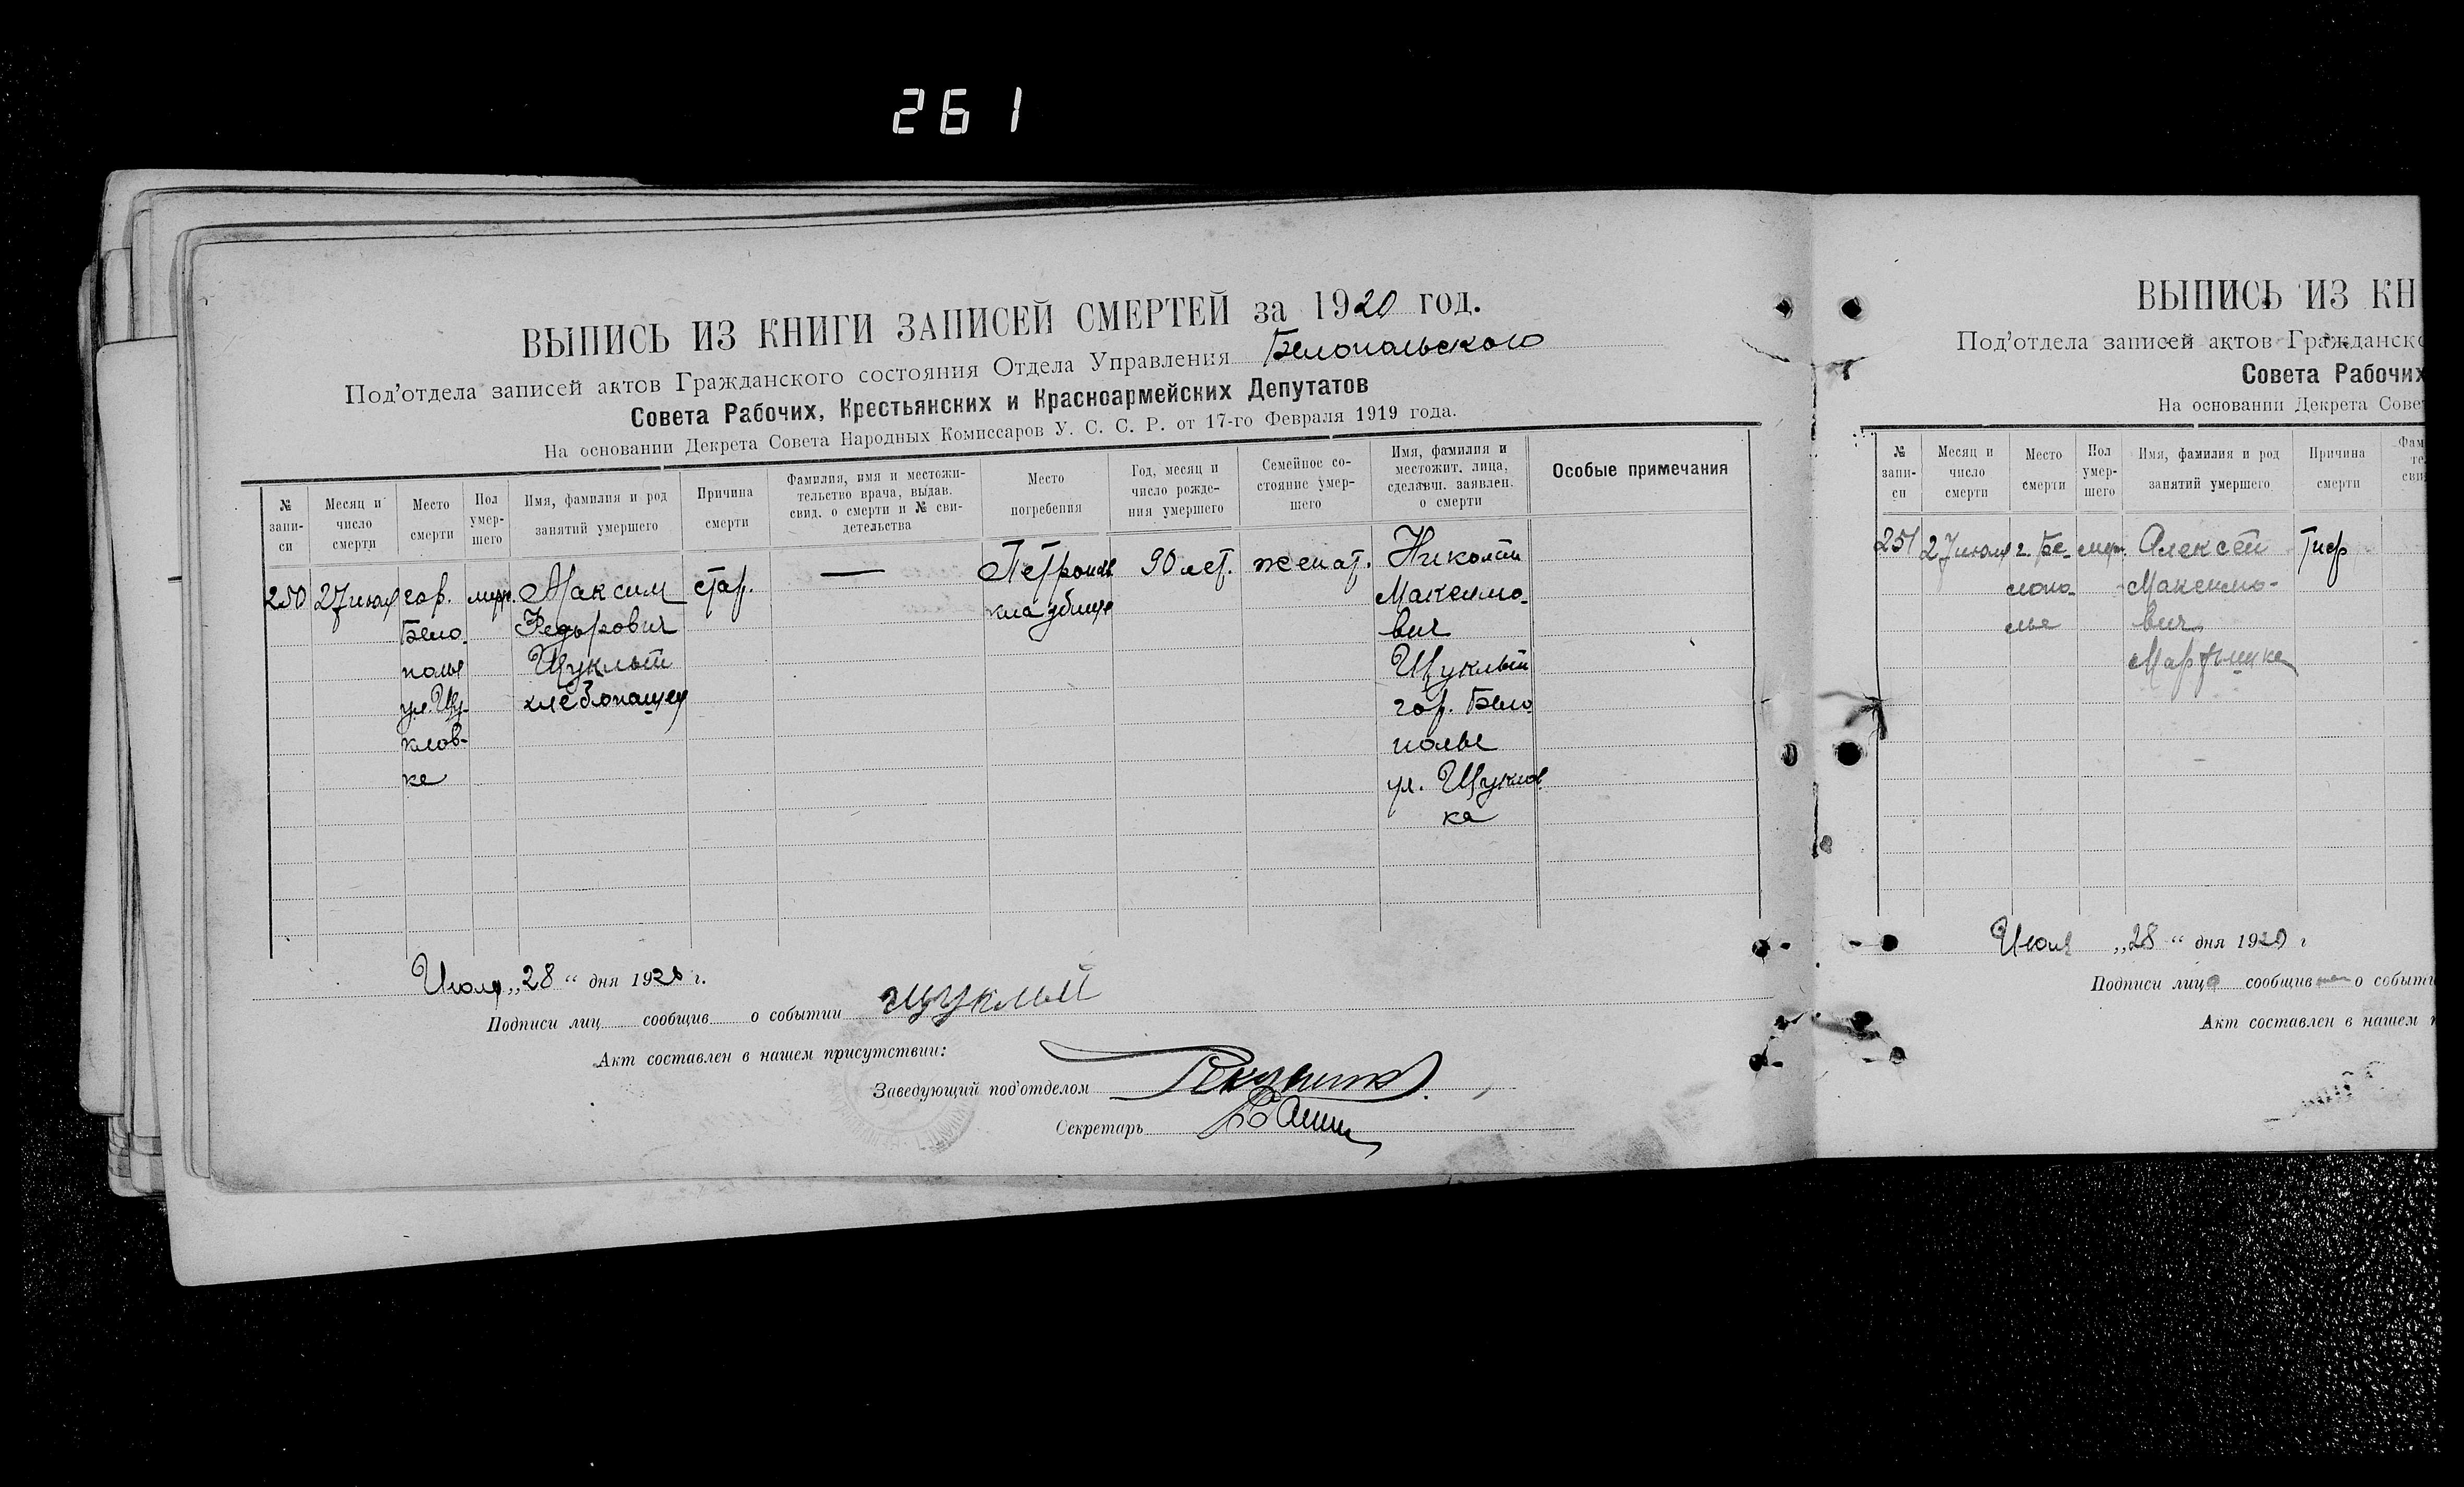 261
ВЫПИСЬ ИЗ КНИГИ ЗАПИСЕЙ СМЕРТЕЙ за 1920 год.
Под'отдела записей актов Гражданского состояния Отдела Управления Белопольского
Совета Рабочих, Крестьянских и Красноармейских Депутатов
На основании Декрета Совета Народных Комиссаров У. С. С. Р. от 17-го Февраля 1919 года.
№ запи-си
Месяц и число смерти
Место смерти
Пол умер-шего
Имя, фамилия и род занятий умершего
Причина смерти
Фамилия, имя и местожи-тельство врача, выдав. свид. о смерти и № сви-детельства
Место погребения
Год, месяц и число рожде-ния умершего
Семейное со-стояние умер-шего
Имя, фамилия и местожит. лица, сделавш. заявлен. о смерти
Особые примечания
250
27 июля
гор.
Бело-
полье
ул. Щу-
клов-
ке
муж.
Максим
Федорович
Щуклый
хлебопашец
стар.
—
Петропав
кладбище
90 лет.
женат.
Николай
Максимо-
вич
Щуклый
гор. Бело
полье
ул. Щуклов
ка
Июля „28“ дня 1920 г.
Подписи лиц сообщив о событии Щуклый
Акт составлен в нашем присутствии:
Заведующий под'отделом
Секретарь
ВЫПИСЬ ИЗ КН
Под'отдела записей актов Гражданск
Совета Рабочих
На основании Декрета Сове
№ запи-си
Месяц и число смерти
Место смерти
Пол умер-шего
Имя, фамилия и род занятий умершего
Причина смерти
Фам
те
сви
251
27 июля
г. Бе-
лопо-
лье
муж.
Алексей
Максимо-
вич
Тиф
Июля „28“ дня 1920 г
Подписи лица сообщив о событи
Акт составлен в нашем п